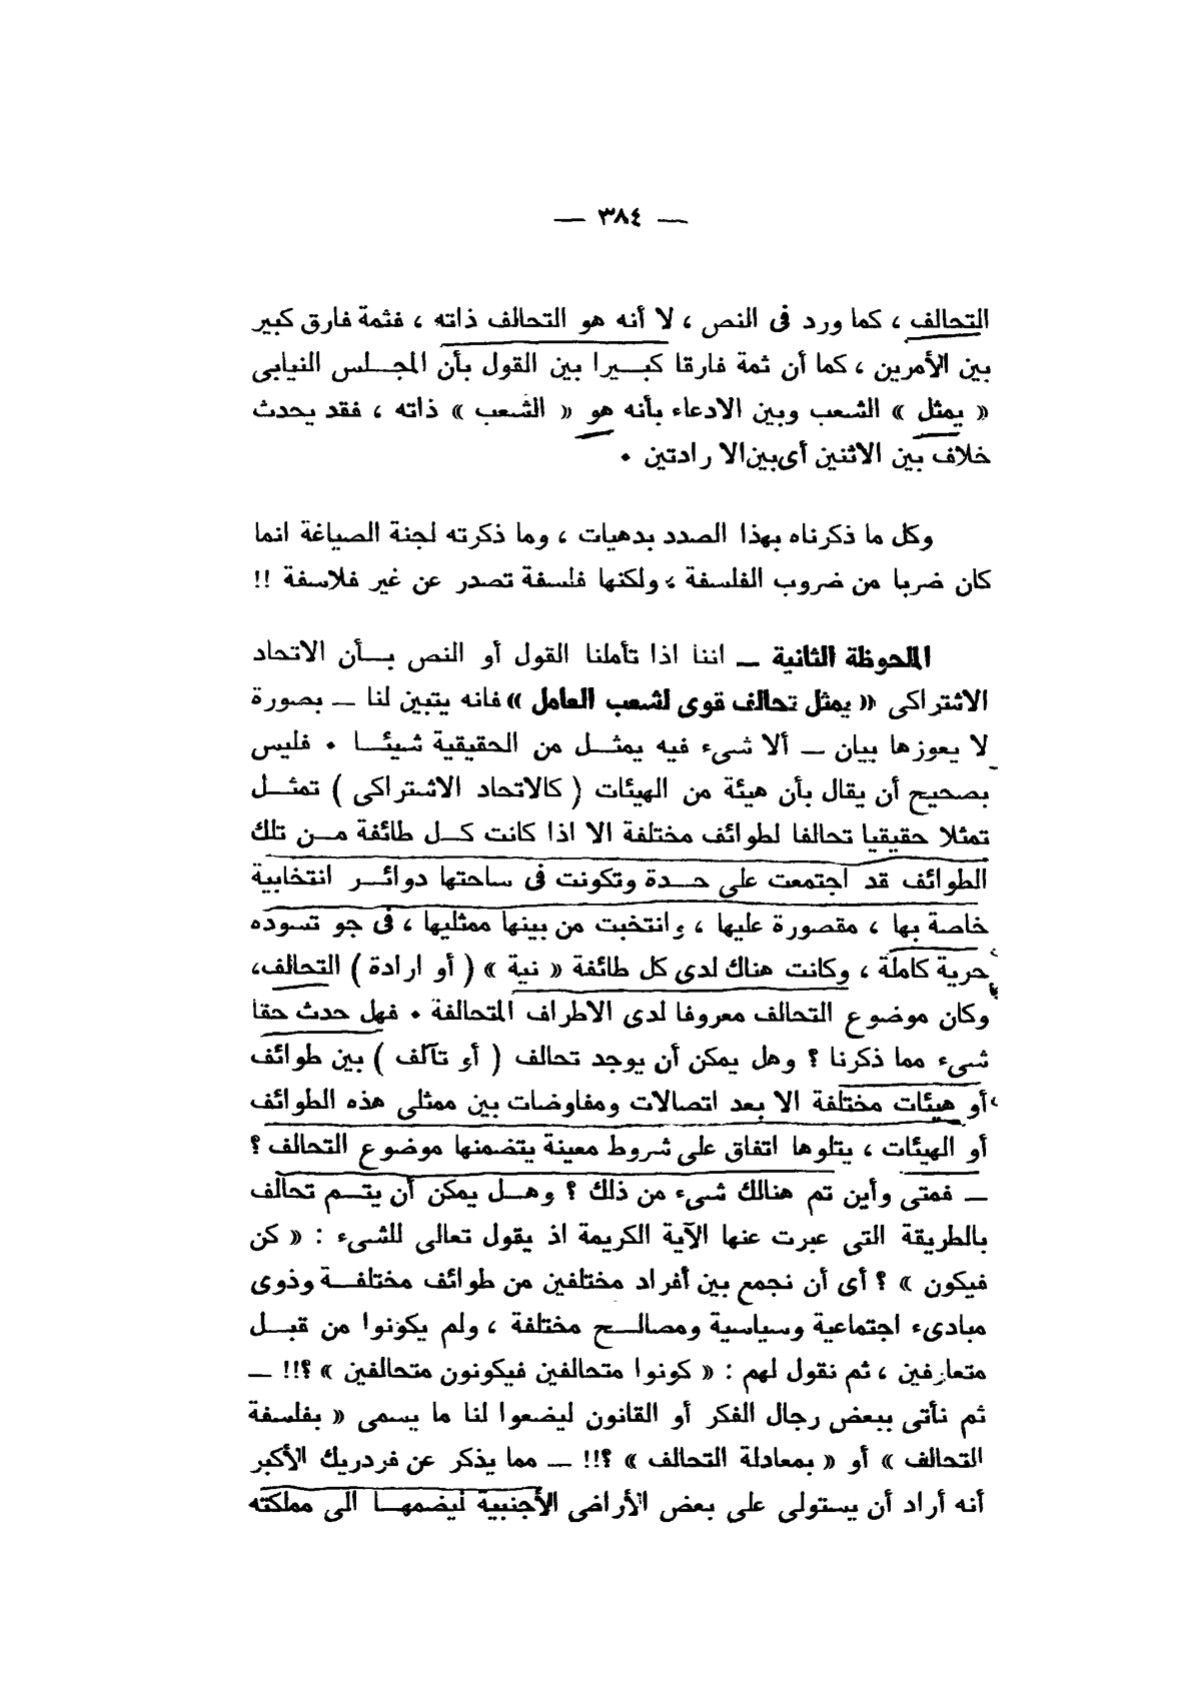 — ٣٨٤ —
التحالف ، كما ورد فى النص ، لا أنه هو التحالف ذاته ، فثمة فارق كبير
بين الأمرين ، كما أن ثمة فارقا كبــيرا بين القول بأن المجــلس النيابى
« يمثل » الشعب وبين الادعاء بأنه هو « الشعب » ذاته ، فقد يحدث
خلاف بين الاثنين أى بين الا رادتين .
وكل ما ذكرناه بهذا الصدد بدهيات ، وما ذكرته لجنة الصياغة انما
كان ضربا من ضروب الفلسفة ، ولكنها فلسفة تصدر عن غير فلاسفة !!
الملحوظة الثانية — اننا اذا تأملنا القول أو النص بــأن الاتحاد
الاشتراكى « يمثل تحالف قوى لشعب العامل » فانه يتبين لنا — بصورة
لا يعوزها بيان — ألا شىء فيه يمثــل من الحقيقية شيئــا . فليس
بصحيح أن يقال بأن هيئة من الهيئات ( كالاتحاد الاشتراكى ) تمثــل
تمثلا حقيقيا تحالفا لطوائف مختلفة الا اذا كانت كــل طائفة مــن تلك
الطوائف قد اجتمعت على حــدة وتكونت فى ساحتها دوائــر انتخابية
خاصة بها ، مقصورة عليها ، وانتخبت من بينها ممثليها ، فى جو تسوده
حرية كاملة ، وكانت هناك لدى كل طائفة « نية » ( أو ارادة ) التحالف،
وكان موضوع التحالف معروفا لدى الاطراف المتحالفة . فهل حدث حقا
شىء مما ذكرنا ؟ وهل يمكن أن يوجد تحالف ( أو تآلف ) بين طوائف
أو هيئات مختلفة الا بعد اتصالات ومفاوضات بين ممثلى هذه الطوائف
أو الهيئات ، يتلوها اتفاق على شروط معينة يتضمنها موضوع التحالف ؟
— فمتى وأين تم هنالك شىء من ذلك ؟ وهــل يمكن أن يتــم تحالف
بالطريقة التى عبرت عنها الآية الكريمة اذ يقول تعالى للشىء : « كن
فيكون » ؟ أى أن نجمع بين أفراد مختلفين من طوائف مختلفــة وذوى
مبادىء اجتماعية وسياسية ومصالــح مختلفة ، ولم يكونوا من قبــل
متعارفين ، ثم نقول لهم : « كونوا متحالفين فيكونون متحالفين » ؟!! —
ثم نأتى ببعض رجال الفكر أو القانون ليضعوا لنا ما يسمى « بفلسفة
التحالف » أو « بمعادلة التحالف » ؟!! — مما يذكر عن فردريك الأكبر
أنه أراد أن يستولى على بعض الأراضى الأجنبية ليضمهــا الى مملكته